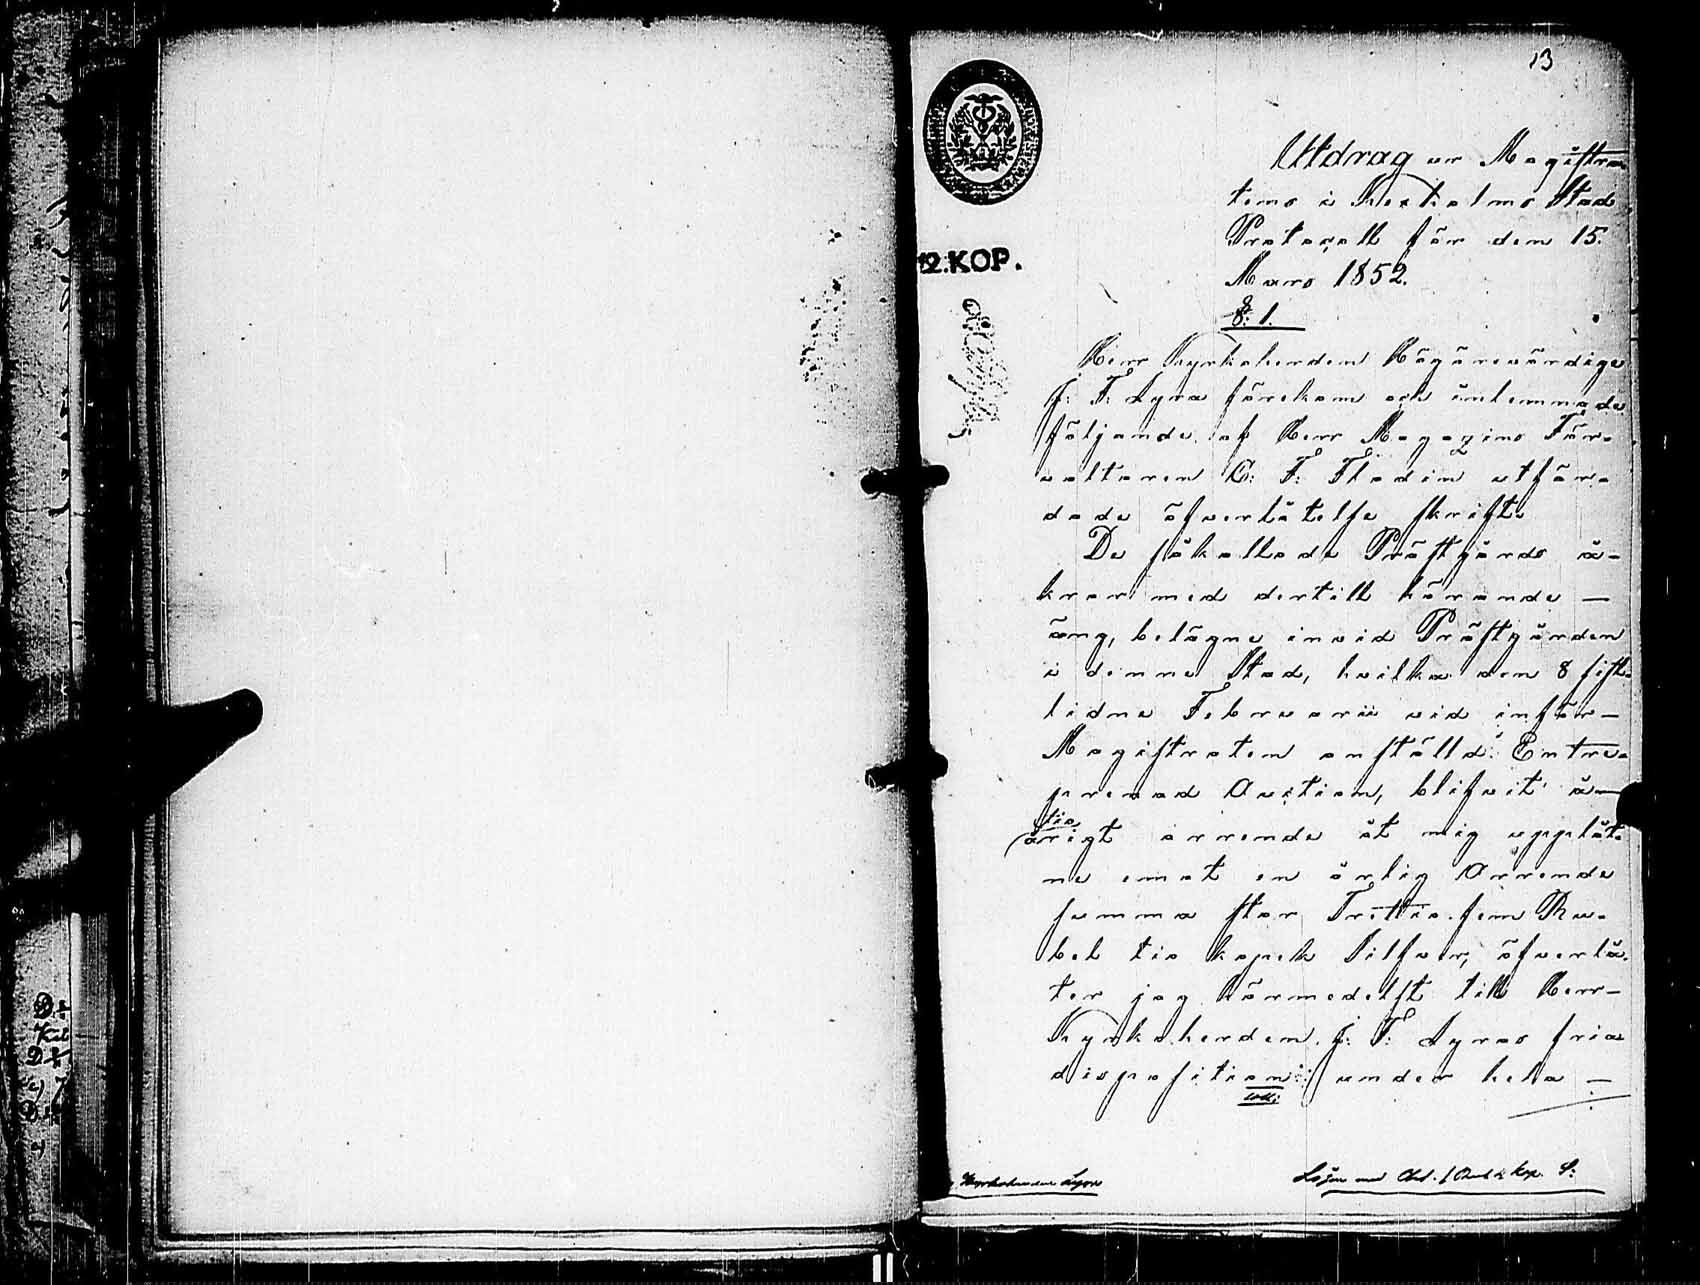 13
Utdrag ur Magistra-
tens i Kexholms Stad
Protocoll för den 15.
Mars 1852.
§: 1.
12.KOP.
Herr Kyrkoherden Högärevärdige
J: F: Lyra förekom och inlemnade
följande af Herr Magazins För-
valtaren C: F: Flodin utfär-
dade öfverlåtelse skrift.
De såkallade Prästgårds å-
krar med dertill hörande —
äng, belägne invid Prästgården
i denna Stad, hvilka den 8 sist-
lidne Februarii vid inför —
Magistraten anställd Entre-
prenad Auction, blifvit å —
tio
årigt arrende åt mig upplåt-
ne emot en årlig Arrende
summa stor Trettio fem Ru-
bel tio kopek Silfver, öfverlå-
ter jag härmedelst till Herr —
Kyrkoherden J: F: Lyras fria
disposition under hela —
Kyrkoherden Lyra
Lösen med Chart. kop. S:
Dt
Dt